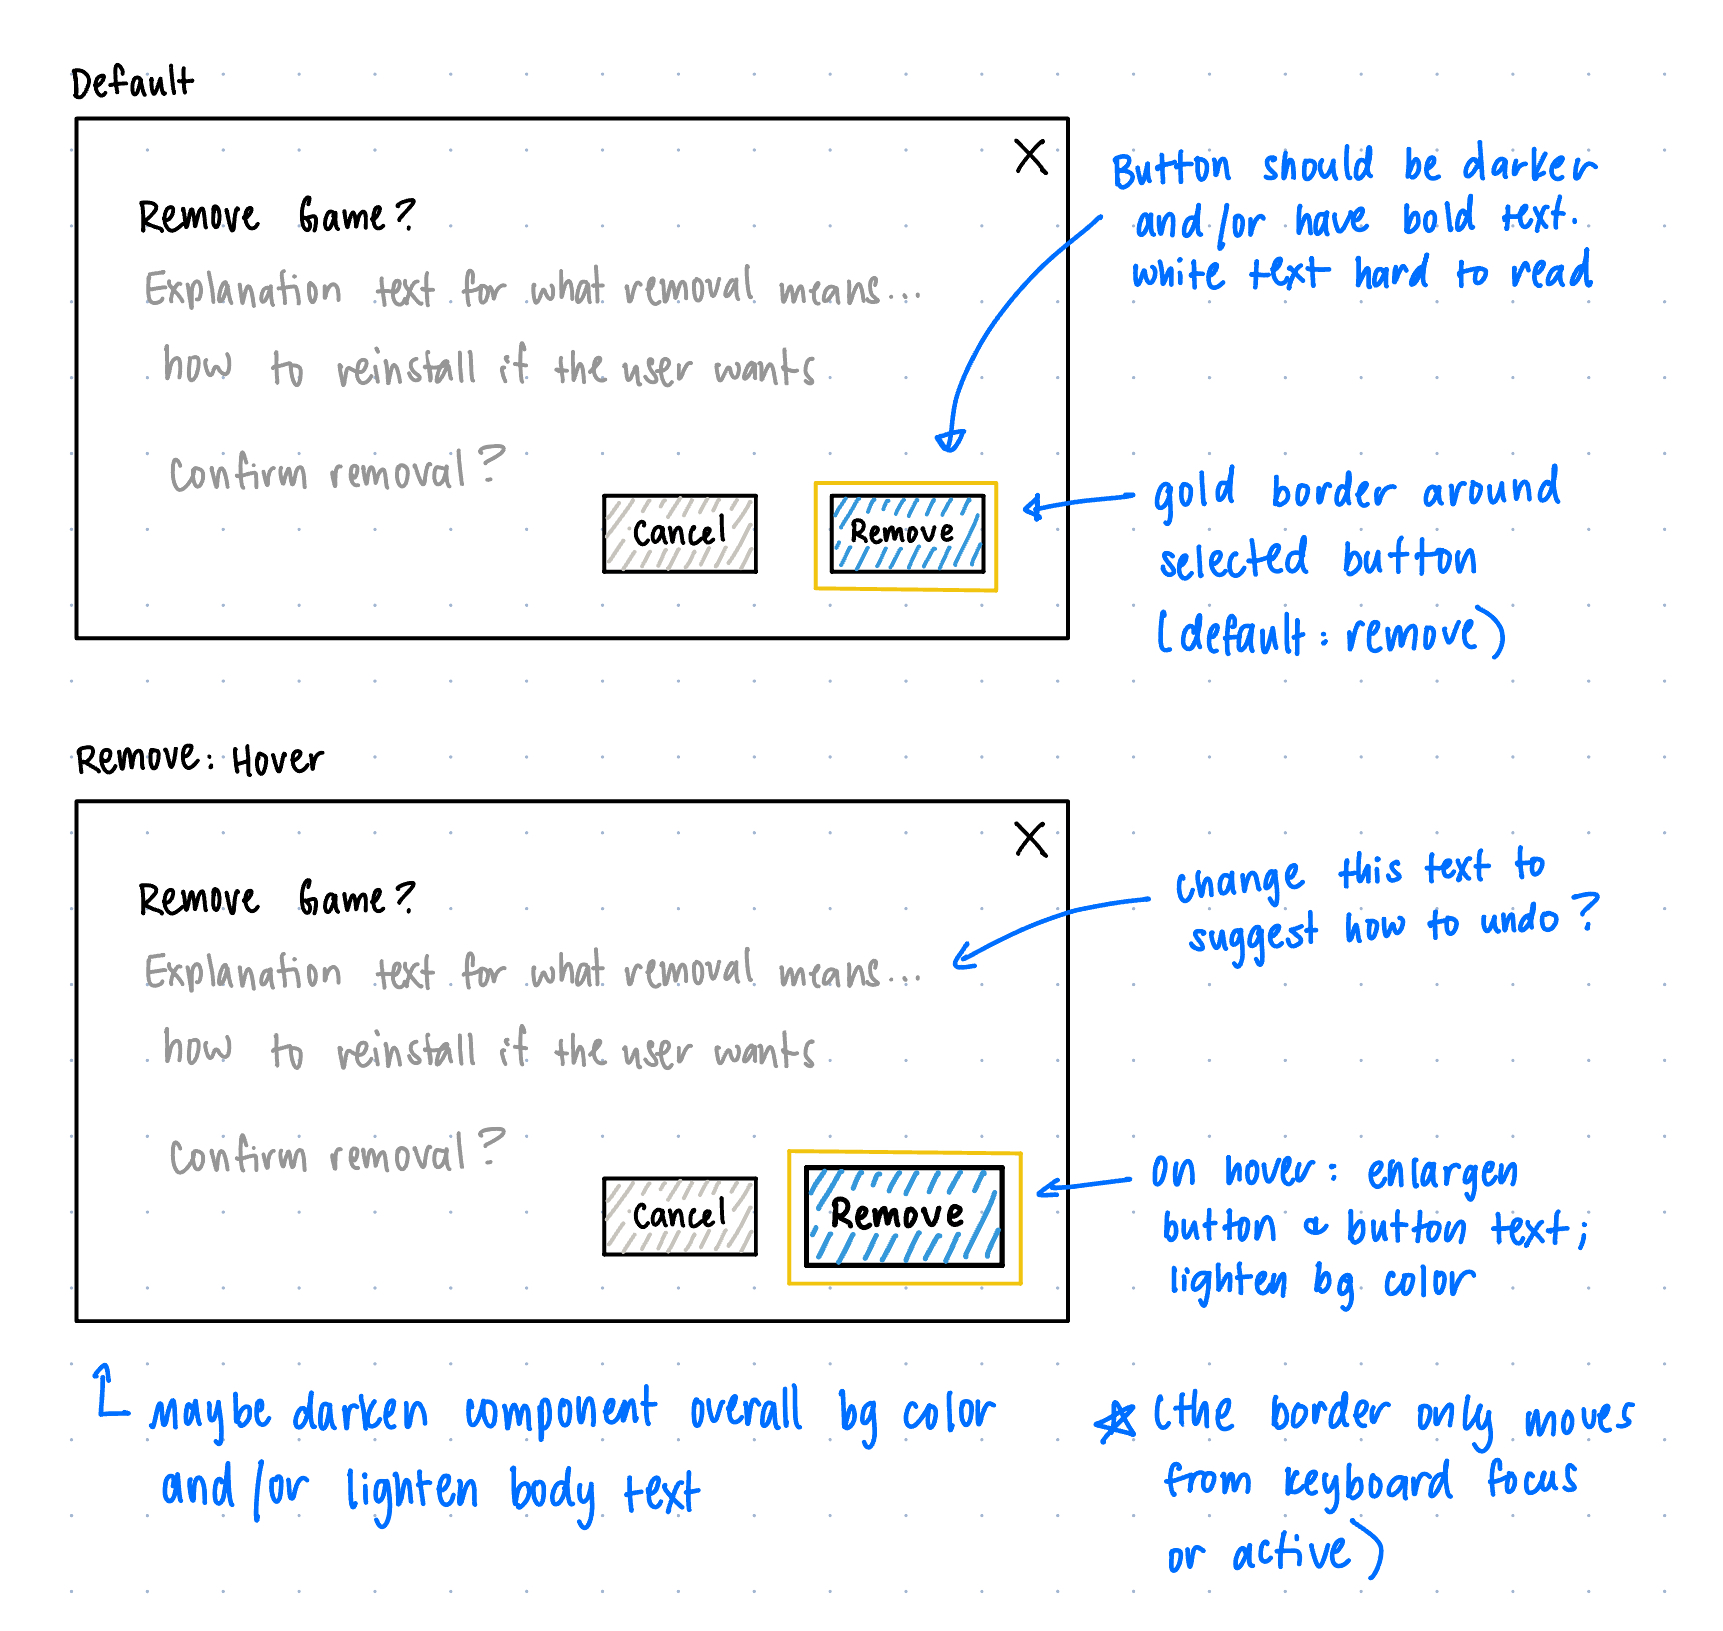 Default
X
Remove Game?
Explanation text for what removal means...
how to reinstall if the user wants
Confirm removal?
Cancel
Remove
Button should be darker
and/or have bold text.
white text hard to read
gold border around
selected button
(default: remove)
Remove: Hover
X
Remove Game?
Explanation text for what removal means...
how to reinstall if the user wants
Confirm removal?
Cancel
Remove
change this text to
suggest how to undo?
on hover: enlargen
button & button text;
lighten bg color
maybe darken component overall bg color
and/or lighten body text
(the border only moves
from keyboard focus
or active)